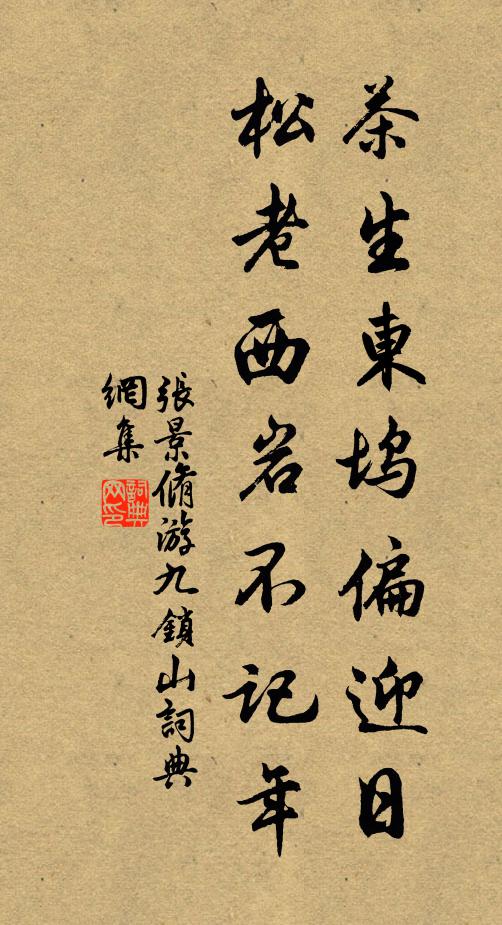 茶生東塢偏迎日
松老西岩不記年
張景脩游九鎖山詞典
網集
詞典
网印